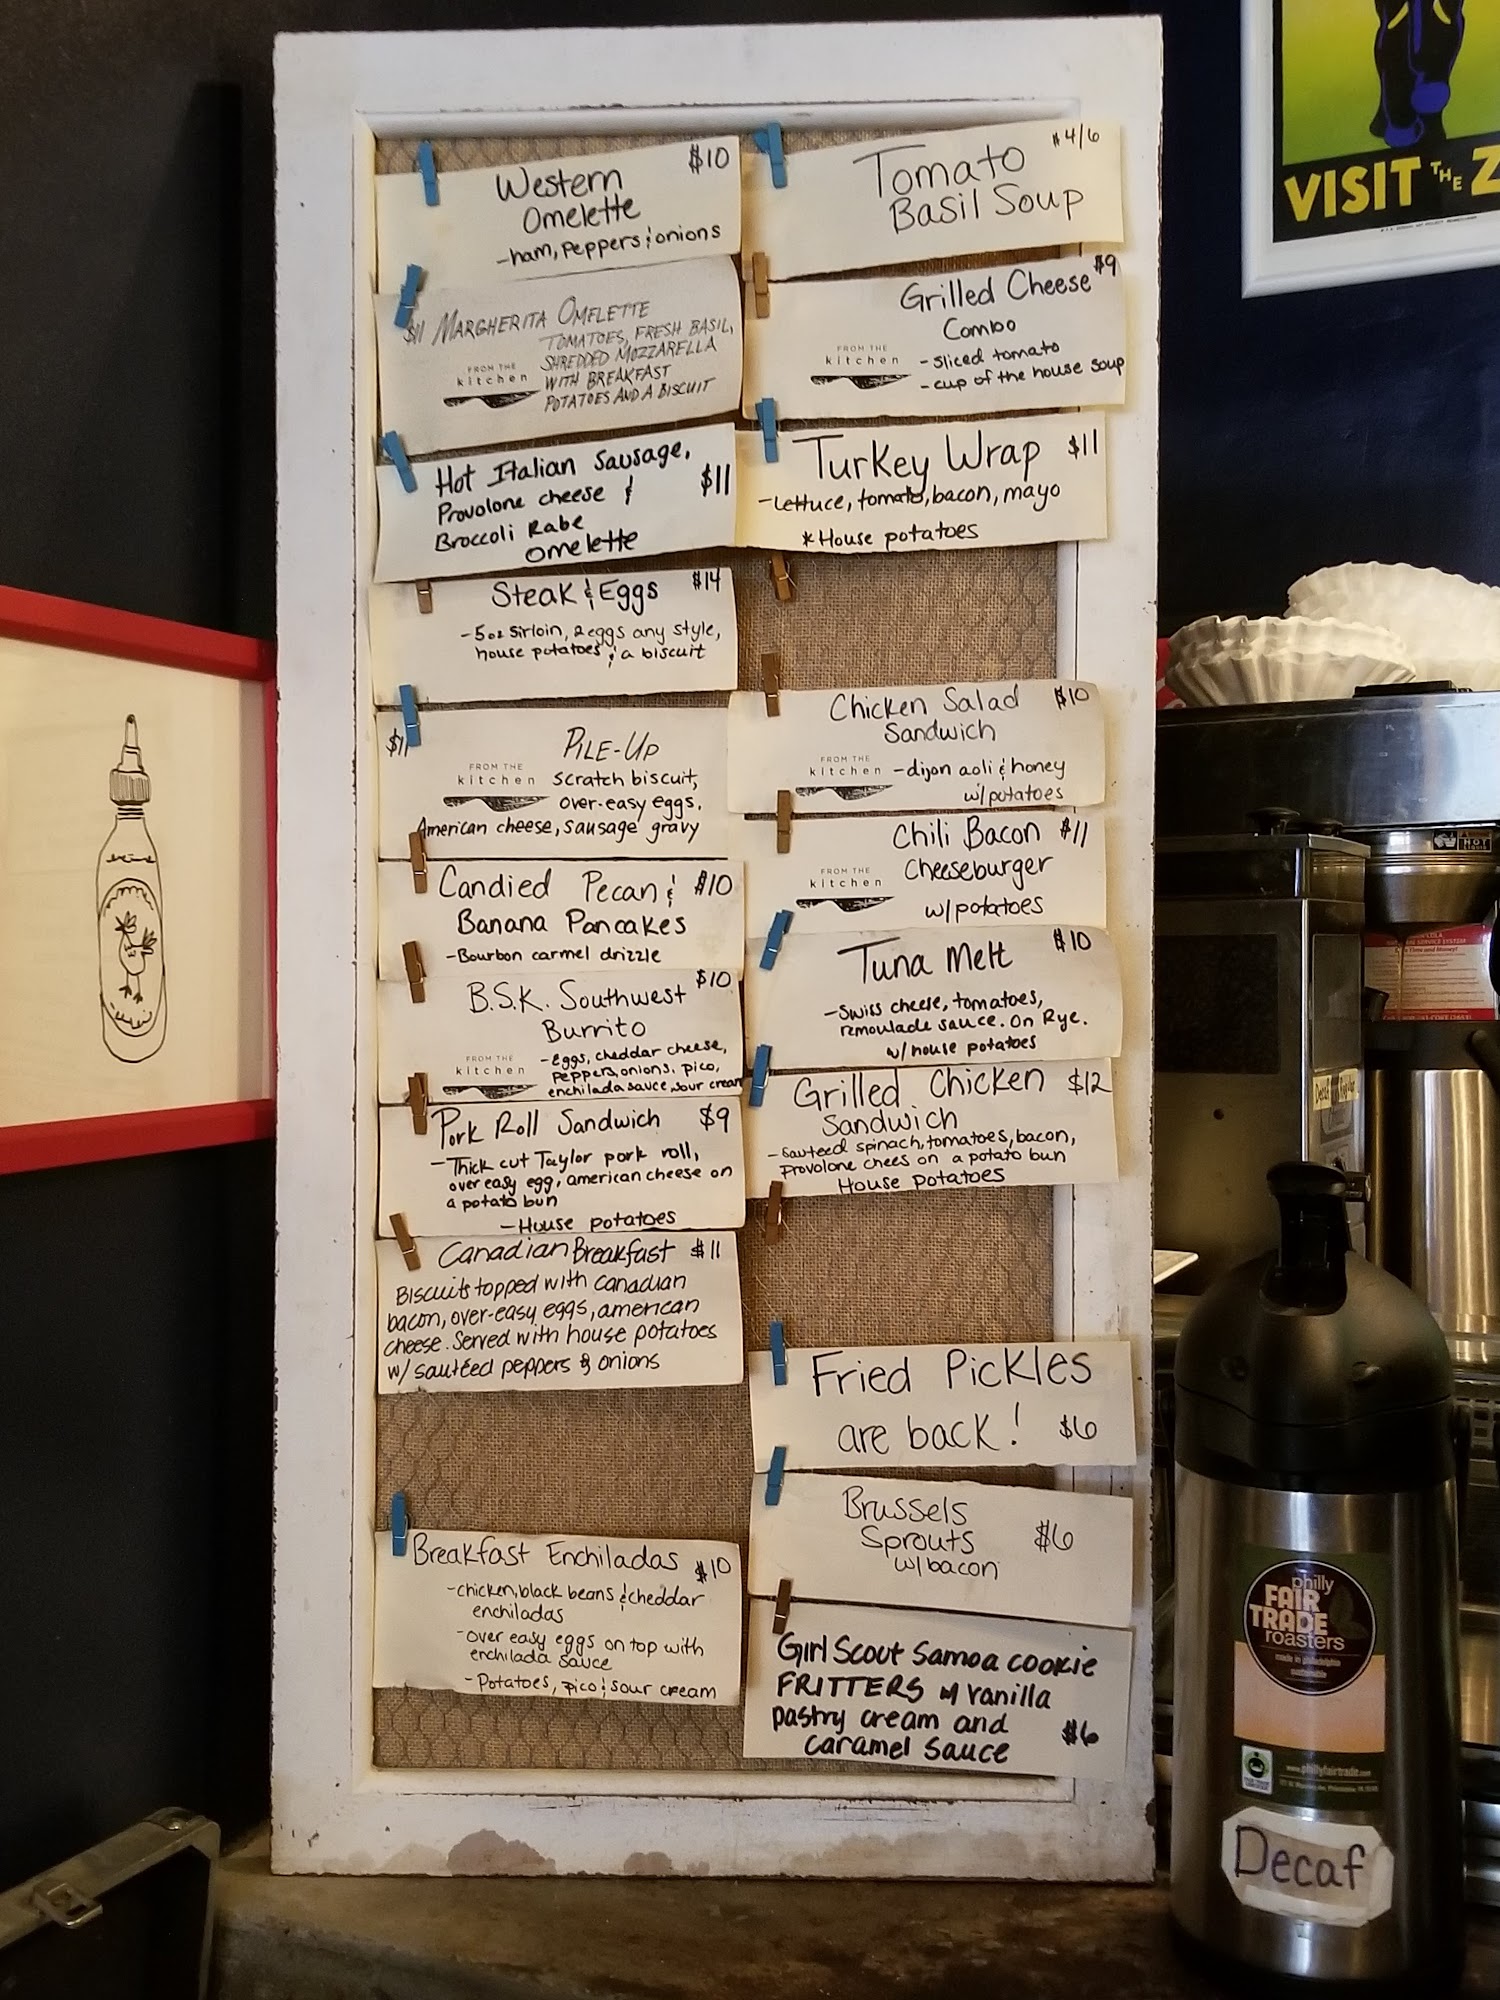 Western $10
Omelette
-ham, peppers & onions
$11 MARGHERITA OMELETTE
TOMATOES, FRESH BASIL,
SHREDDED MOZZARELLA
WITH BREAKFAST
POTATOES AND A BISCUIT
FROM THE
kitchen
Hot Italian Sausage,
Provolone cheese & $11
Broccoli Rabe
Omelette
Steak & Eggs $14
-5oz Sirloin, 2 eggs any style,
house potatoes & a biscuit
$11 PILE-UP
FROM THE
kitchen
scratch biscuit,
over-easy eggs,
American cheese, sausage gravy
Candied Pecan & $10
Banana Pancakes
-Bourbon carmel drizzle
B.S.K. Southwest $10
Burrito
FROM THE
kitchen
-Eggs, cheddar cheese,
peppers, onions, pico,
enchilada sauce, sour cream
Pork Roll Sandwich $9
-Thick cut Taylor pork roll,
over easy egg, american cheese on
a potato bun
-House potatoes
Canadian Breakfast $11
Biscuits topped with canadian
bacon, over-easy eggs, american
cheese. Served with house potatoes
w/ sautéed peppers & onions
Breakfast Enchiladas $10
-chicken, black beans & cheddar
enchiladas
-over easy eggs on top with
enchilada sauce
-Potatoes, pico & sour cream
Tomato $4/6
Basil Soup
Grilled Cheese $9
Combo
FROM THE
kitchen
-sliced tomato
-cup of the house soup
Turkey Wrap $11
-Lettuce, tomato, bacon, mayo
*House potatoes
Chicken Salad $10
Sandwich
FROM THE
kitchen
-dijon aoli & honey
w/potatoes
Chili Bacon $11
Cheeseburger
FROM THE
kitchen
w/potatoes
Tuna Melt $10
-Swiss cheese, tomatoes,
remoulade sauce. On Rye.
w/ house potatoes
Grilled Chicken $12
Sandwich
-Sauteed spinach, tomatoes, bacon,
provolone chees on a potato bun
House potatoes
Fried Pickles
are back! $6
Brussels
Sprouts $6
w/bacon
Girl Scout Samoa cookie
FRITTERS w/ vanilla
pastry cream and
caramel sauce $6
VISIT THE Z
HOT
philly
FAIR
TRADE
roasters
made in philadelphia
sustainable
www.phillyfairtrade.com
Decaf